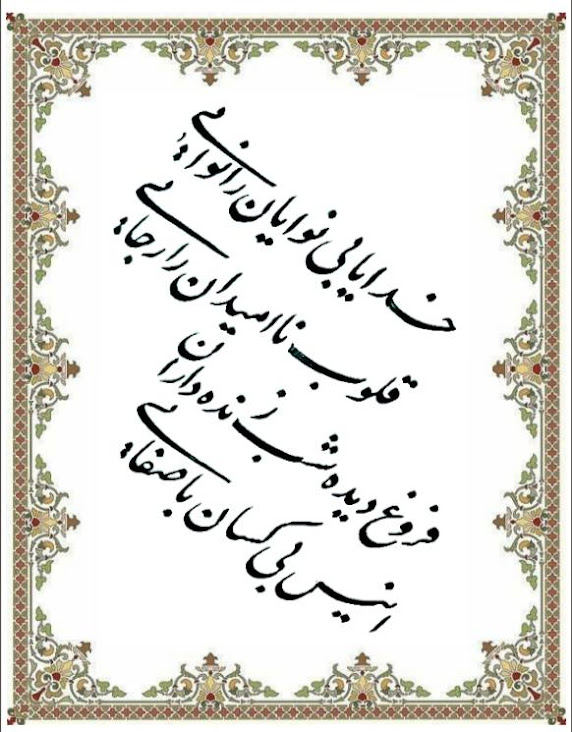 خدایا بی نوایان را نوایی
قلوب ناامیدان را رجایی
فروغ دیده شب زنده داران
انیس بی کسان با صفایی